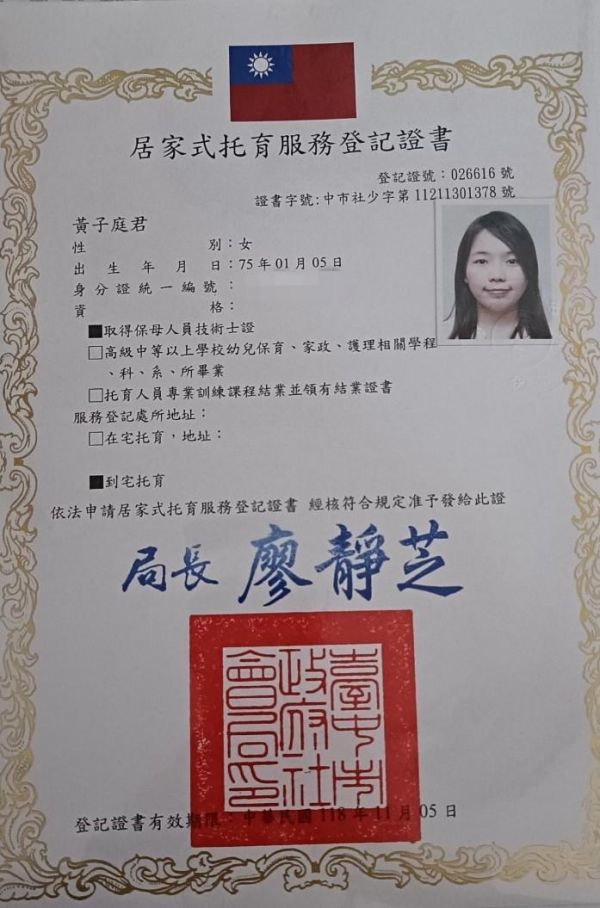 居家式托育服務登記證書
登記證號：026616 號
證書字號:中市社少字第 11211301378 號
黃子庭君
性別：女
出生年月日：75 年 01 月 05 日
身分證統一編號：
資格：
■取得保母人員技術士證
□高級中等以上學校幼兒保育、家政、護理相關學程
、科、系、所畢業
□托育人員專業訓練課程結業並領有結業證書
服務登記處所地址：
□在宅托育，地址：
■到宅托育
依法申請居家式托育服務登記證書 經核符合規定准予發給此證
局長 廖靜芝
臺中市
政府社
會局印
登記證書有效期限：中華民國 118 年 11 月 05 日